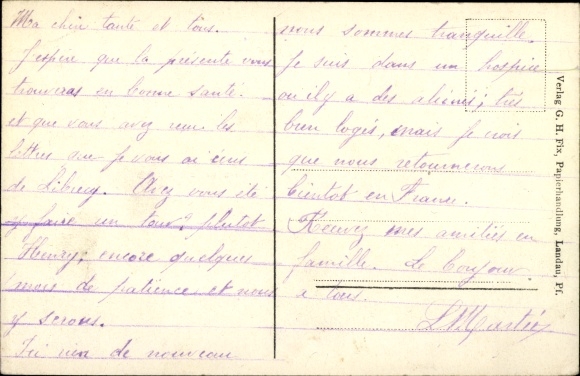 Ma chère tante et tous.
J'espère que la présente vous
trouveras en bonne santé.
et que vous avez reçu les
lettres que je vous ai
de Avez vous été
y faire un tour? plutôt
Henry, encore quelques
mois de patience et nous
y serons.
Ici rien de nouveau
nous sommes tranquille.
Je suis dans un hospice
ou il y a des aliénés; très
bien logés, mais je crois
que nous retournerons
bientôt en France.
Recevez mes amitiés en
famille. Le bonjour
a tous.
Verlag G. H. Fix, Papierhandlung, Landau, Pf.